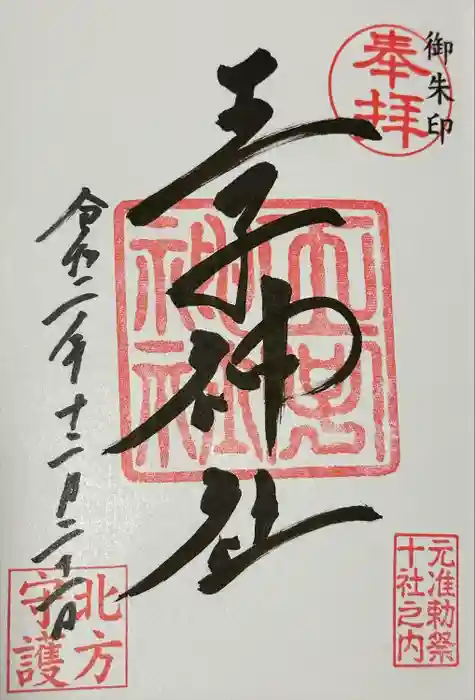 御朱印
奉拝
王子神社
王子神社
令和二年十二月二十六日
元准勅祭
十社之内
北方
守護